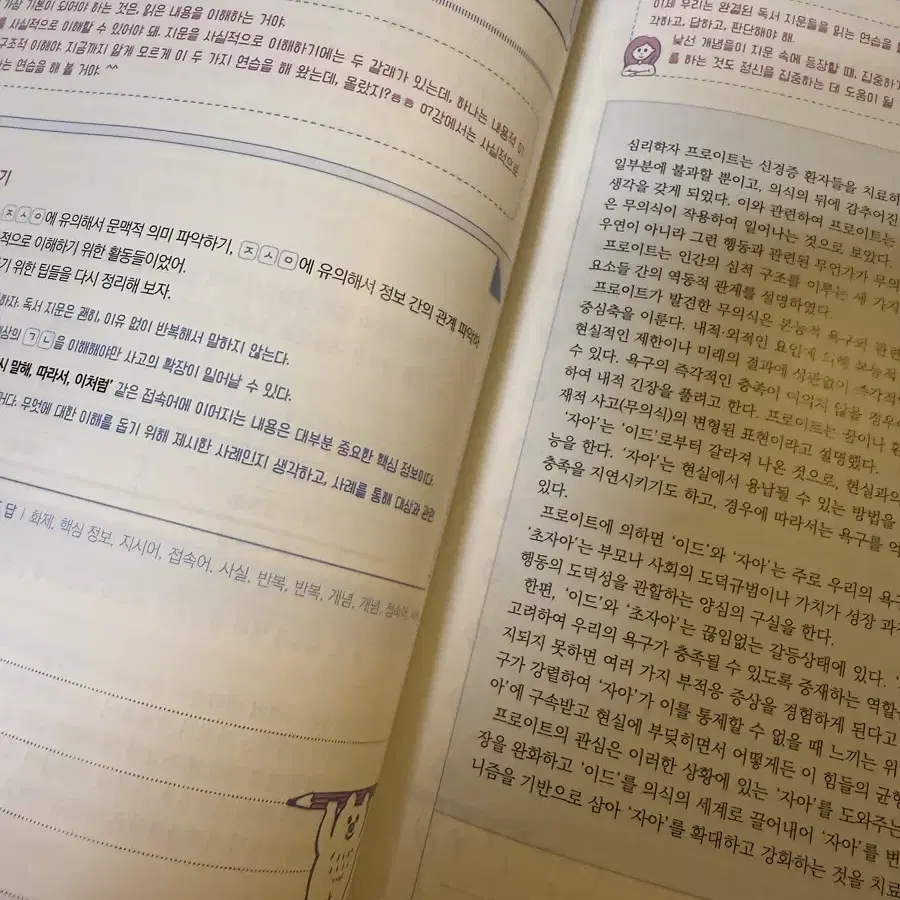 가장 기본이 되어야 하는 것은, 읽은 내용을 이해하는 거야.
를 사실적으로 이해할 수 있어야 돼. 지문을 사실적으로 이해하기에는 두 갈래가 있는데, 하나는 내용적 이
구조적 이해야. 지금까지 알게 모르게 이 두 가지 연습을 해 왔는데, 몰랐지?ㅎㅎ 07강에서는 사실적으로
는 연습을 해 볼 거야. ^^
기
ㅈㅅㅇ에 유의해서 문맥적 의미 파악하기, ㅈㅅㅇ에 유의해서 정보 간의 관계 파악하
적으로 이해하기 위한 활동들이었어.
기 위한 팁들을 다시 정리해 보자.
하자. 독서 지문은 괜히, 이유 없이 반복해서 말하지 않는다.
대상의 ㄱㄴ을 이해해야만 사고의 확장이 일어날 수 있다.
시 말해, 따라서, 이처럼' 같은 접속어에 이어지는 내용은 대부분 중요한 핵심 정보이다.
거다. 무엇에 대한 이해를 돕기 위해 제시한 사례인지 생각하고, 사례를 통해 대상과 관련
답 | 화제, 핵심 정보, 지시어, 접속어, 사실, 반복, 반복, 개념, 개념, 접속어,
이제 우리는 완결된 독서 지문들을 읽는 연습을
각하고, 답하고, 판단해야 해.
낯선 개념들이 지문 속에 등장할 때, 집중하기
를 하는 것도 정신을 집중하는 데 도움이 될
심리학자 프로이트는 신경증 환자들을 치료하
일부분에 불과할 뿐이고, 의식의 뒤에 감추어진
생각을 갖게 되었다. 이와 관련하여 프로이트는
은 무의식이 작용하여 일어나는 것으로 보았다.
우연이 아니라 그런 행동과 관련된 무언가가 무의
프로이트는 인간의 심적 구조를 이루는 세 가지
요소들 간의 역동적 관계를 설명하였다.
프로이트가 발견한 무의식은 본능적 욕구와 관련
중심축을 이룬다. 내적·외적인 요인에 의해 본능적
현실적인 제한이나 미래의 결과에 상관없이 즉각적
수 있다. 욕구의 즉각적인 충족이 여의치 않을 경우
하여 내적 긴장을 풀려고 한다. 프로이트는 꿈이나 환
재적 사고(무의식)의 변형된 표현이라고 설명했다.
'자아'는 '이드'로부터 갈라져 나온 것으로, 현실과의
능을 한다. '자아'는 현실에서 용납될 수 있는 방법을
충족을 지연시키기도 하고, 경우에 따라서는 욕구를 억
있다.
프로이트에 의하면 '이드'와 '자아'는 주로 우리의 욕구
'초자아'는 부모나 사회의 도덕규범이나 가치가 성장 과
행동의 도덕성을 관할하는 양심의 구실을 한다.
한편, '이드'와 '초자아'는 끊임없는 갈등상태에 있다.
고려하여 우리의 욕구가 충족될 수 있도록 중재하는 역할
지되지 못하면 여러 가지 부적응 증상을 경험하게 된다고
구가 강렬하여 '자아'가 이를 통제할 수 없을 때 느끼는 위
아'에 구속받고 현실에 부딪히면서 어떻게든 이 힘들의 균형
프로이트의 관심은 이러한 상황에 있는 '자아'를 도와주는
장을 완화하고 '이드'를 의식의 세계로 끌어내어 '자아'를 변
니즘을 기반으로 삼아 '자아'를 확대하고 강화하는 것을 치료